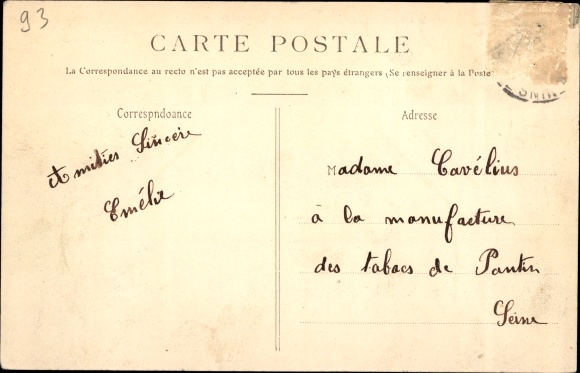 93
CARTE POSTALE
La Correspondance au recto n'est pas acceptée par tous les pays étrangers (Se renseigner à la Poste
Correspndoance
Adresse
Amitiés Sincère
Emélie
Madame Cavélius
à la manufacture
des tabacs de Pantin
Seine